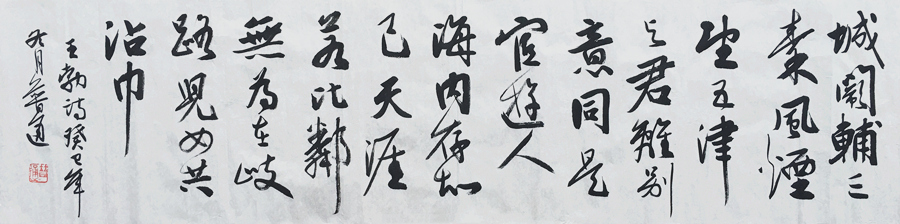 城闕輔三
秦風煙
望五津
与君離別
意同是
宦遊人
海内存知
己天涯
若比鄰
無為在歧
路兒女共
沾巾
王勃詩癸巳年
月